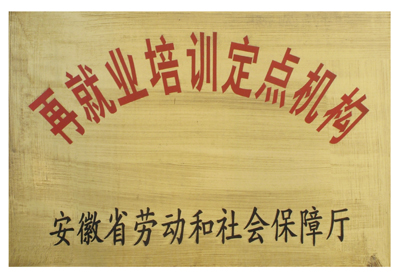 再就业培训定点机构
安徽省劳动和社会保障厅